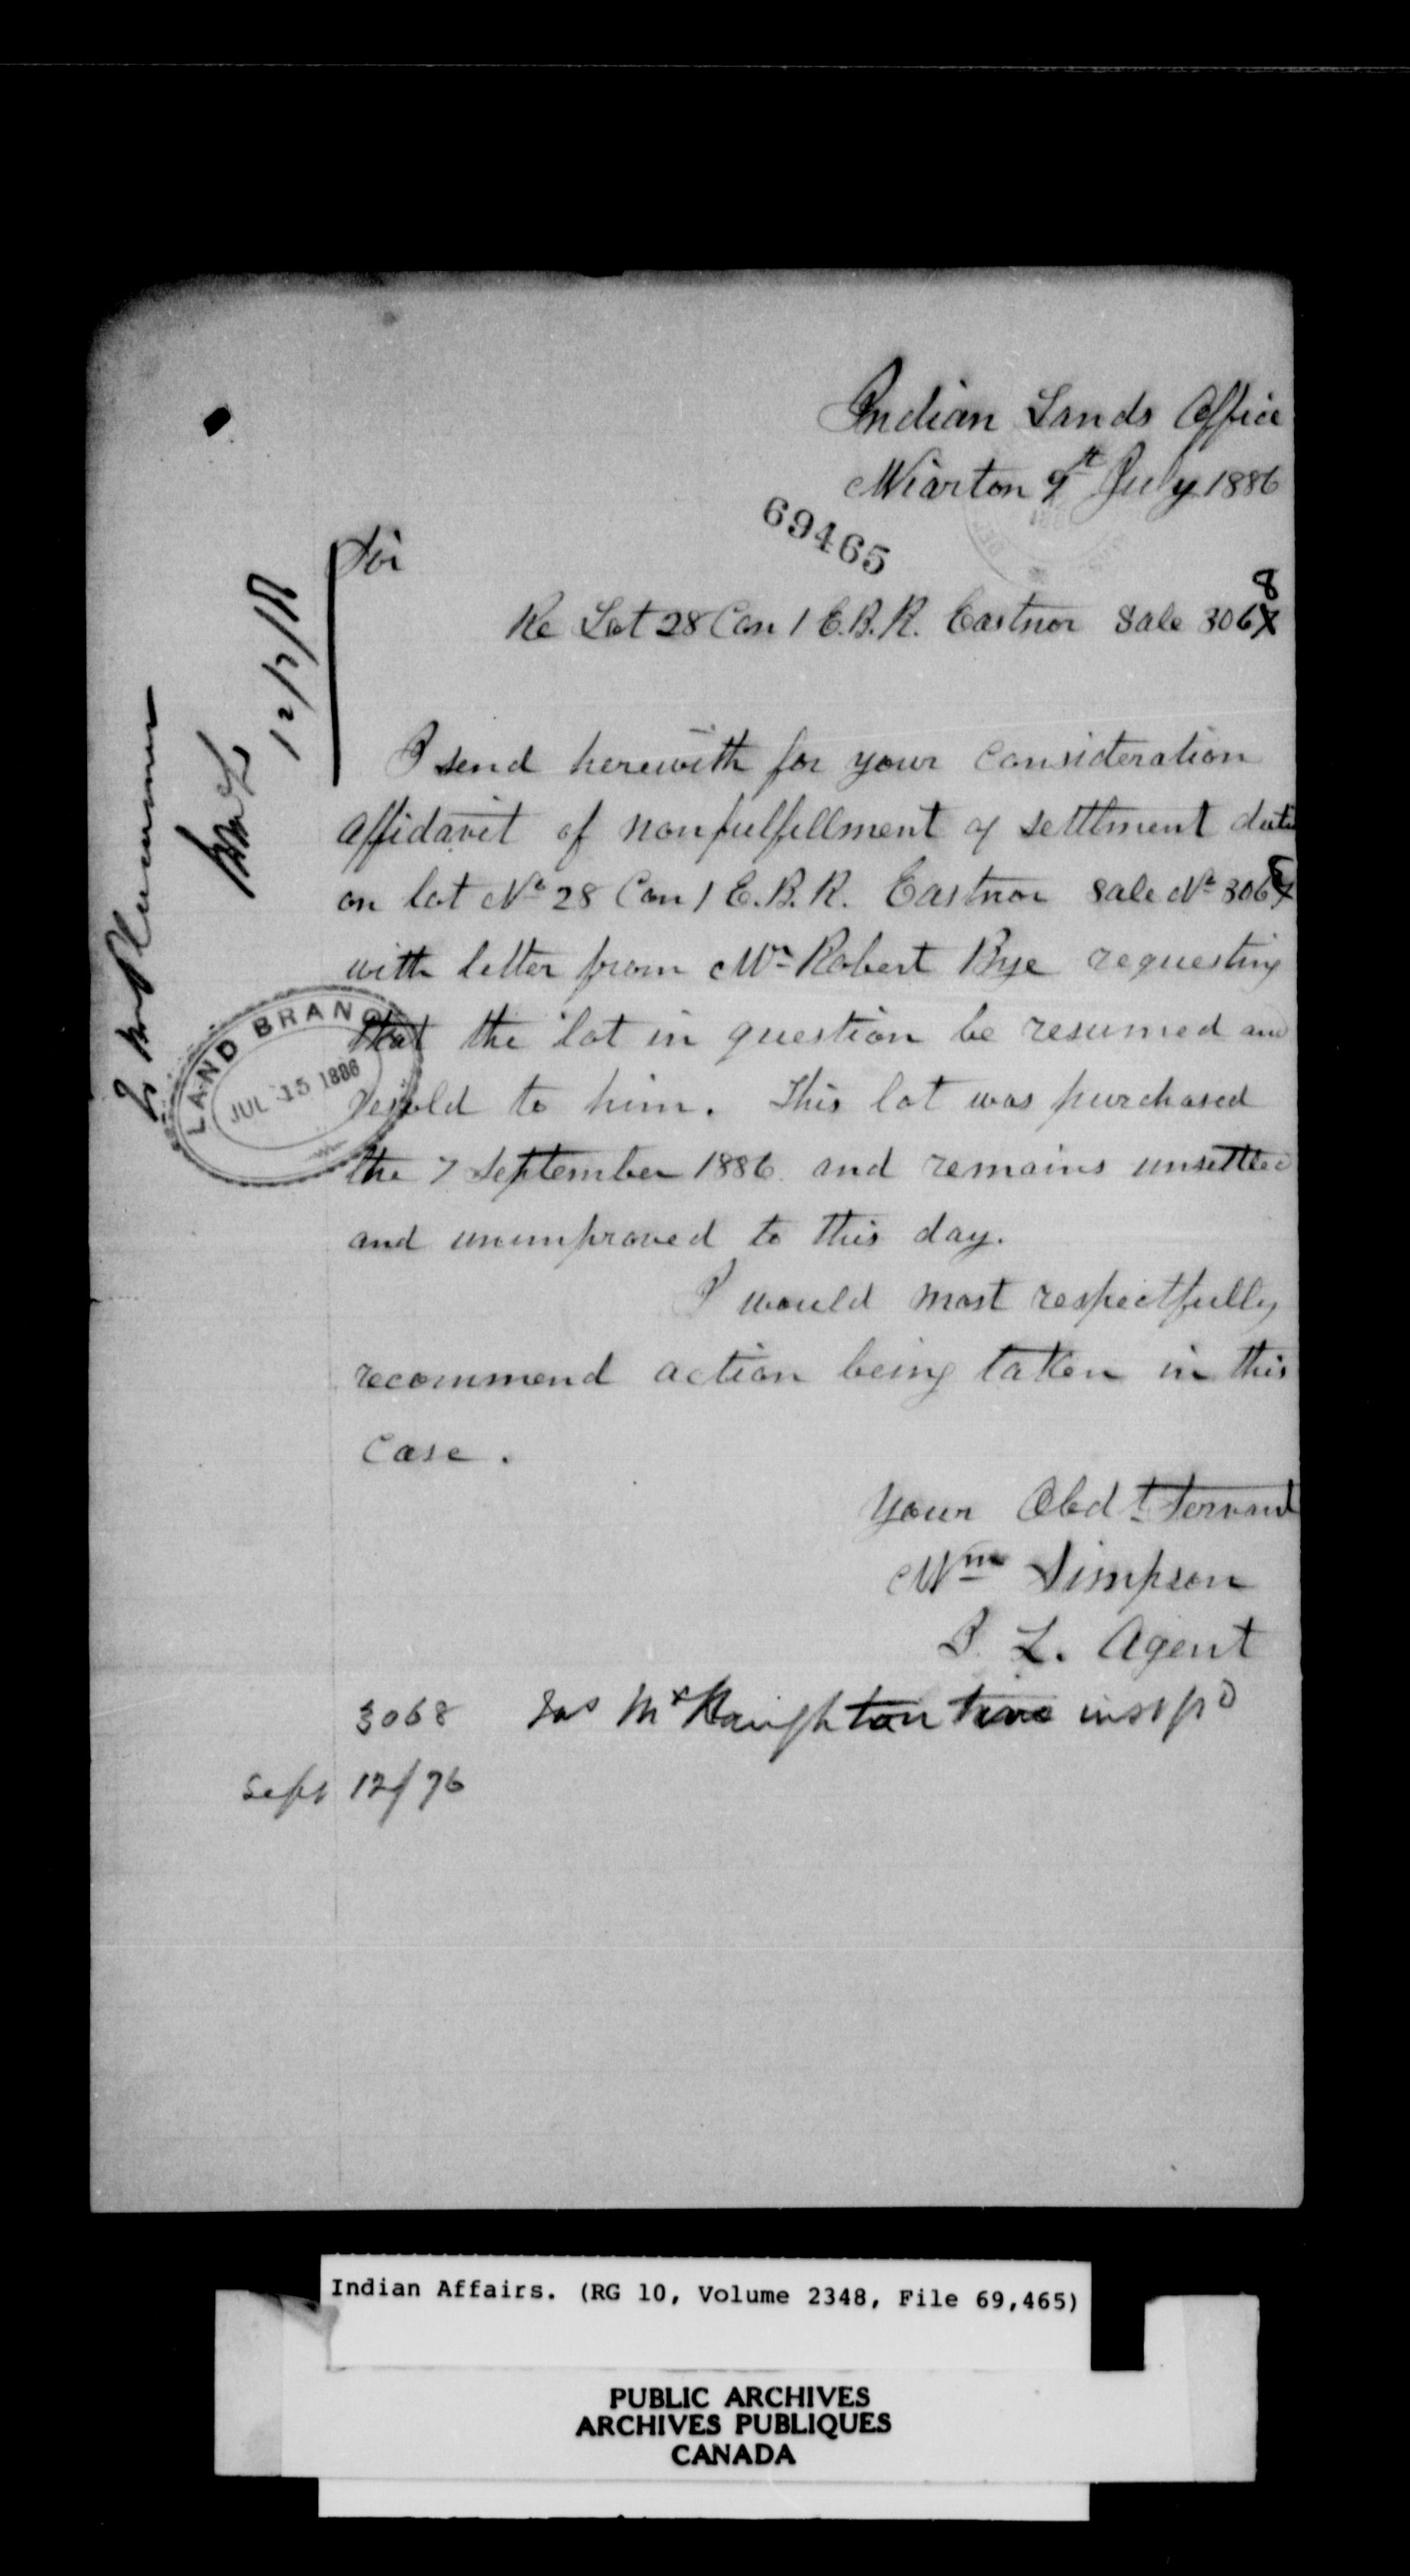 Indian Lands Office
Wiarton 9th July 1886
69465
Sir
Re Lot 28 Con 1 E.B.R. Eastnor Sale 3068
I send herewith for your consideration
affidavit of nonfulfillment of settlment dutie
on lot No 28 Con 1 E.B.R. Eastnor Sale No 3068
with letter from Mr Robert Bye requesting
that the lot in question be resumed and
resold to him. This lot was purchased
the 7 September 1886 and remains unsettled
and unimproved to this day.
I would most respectfully
recommend action being taken in this
Case.
Your Obdt Servant
Wm Simpson
I. L. Agent
3068 Jas McNaughton insp
Sept 12/76
Plummer
12/7/
LAND BRANCH
JUL 15 1886
Indian Affairs. (RG 10, Volume 2348, File 69,465)
PUBLIC ARCHIVES
ARCHIVES PUBLIQUES
CANADA